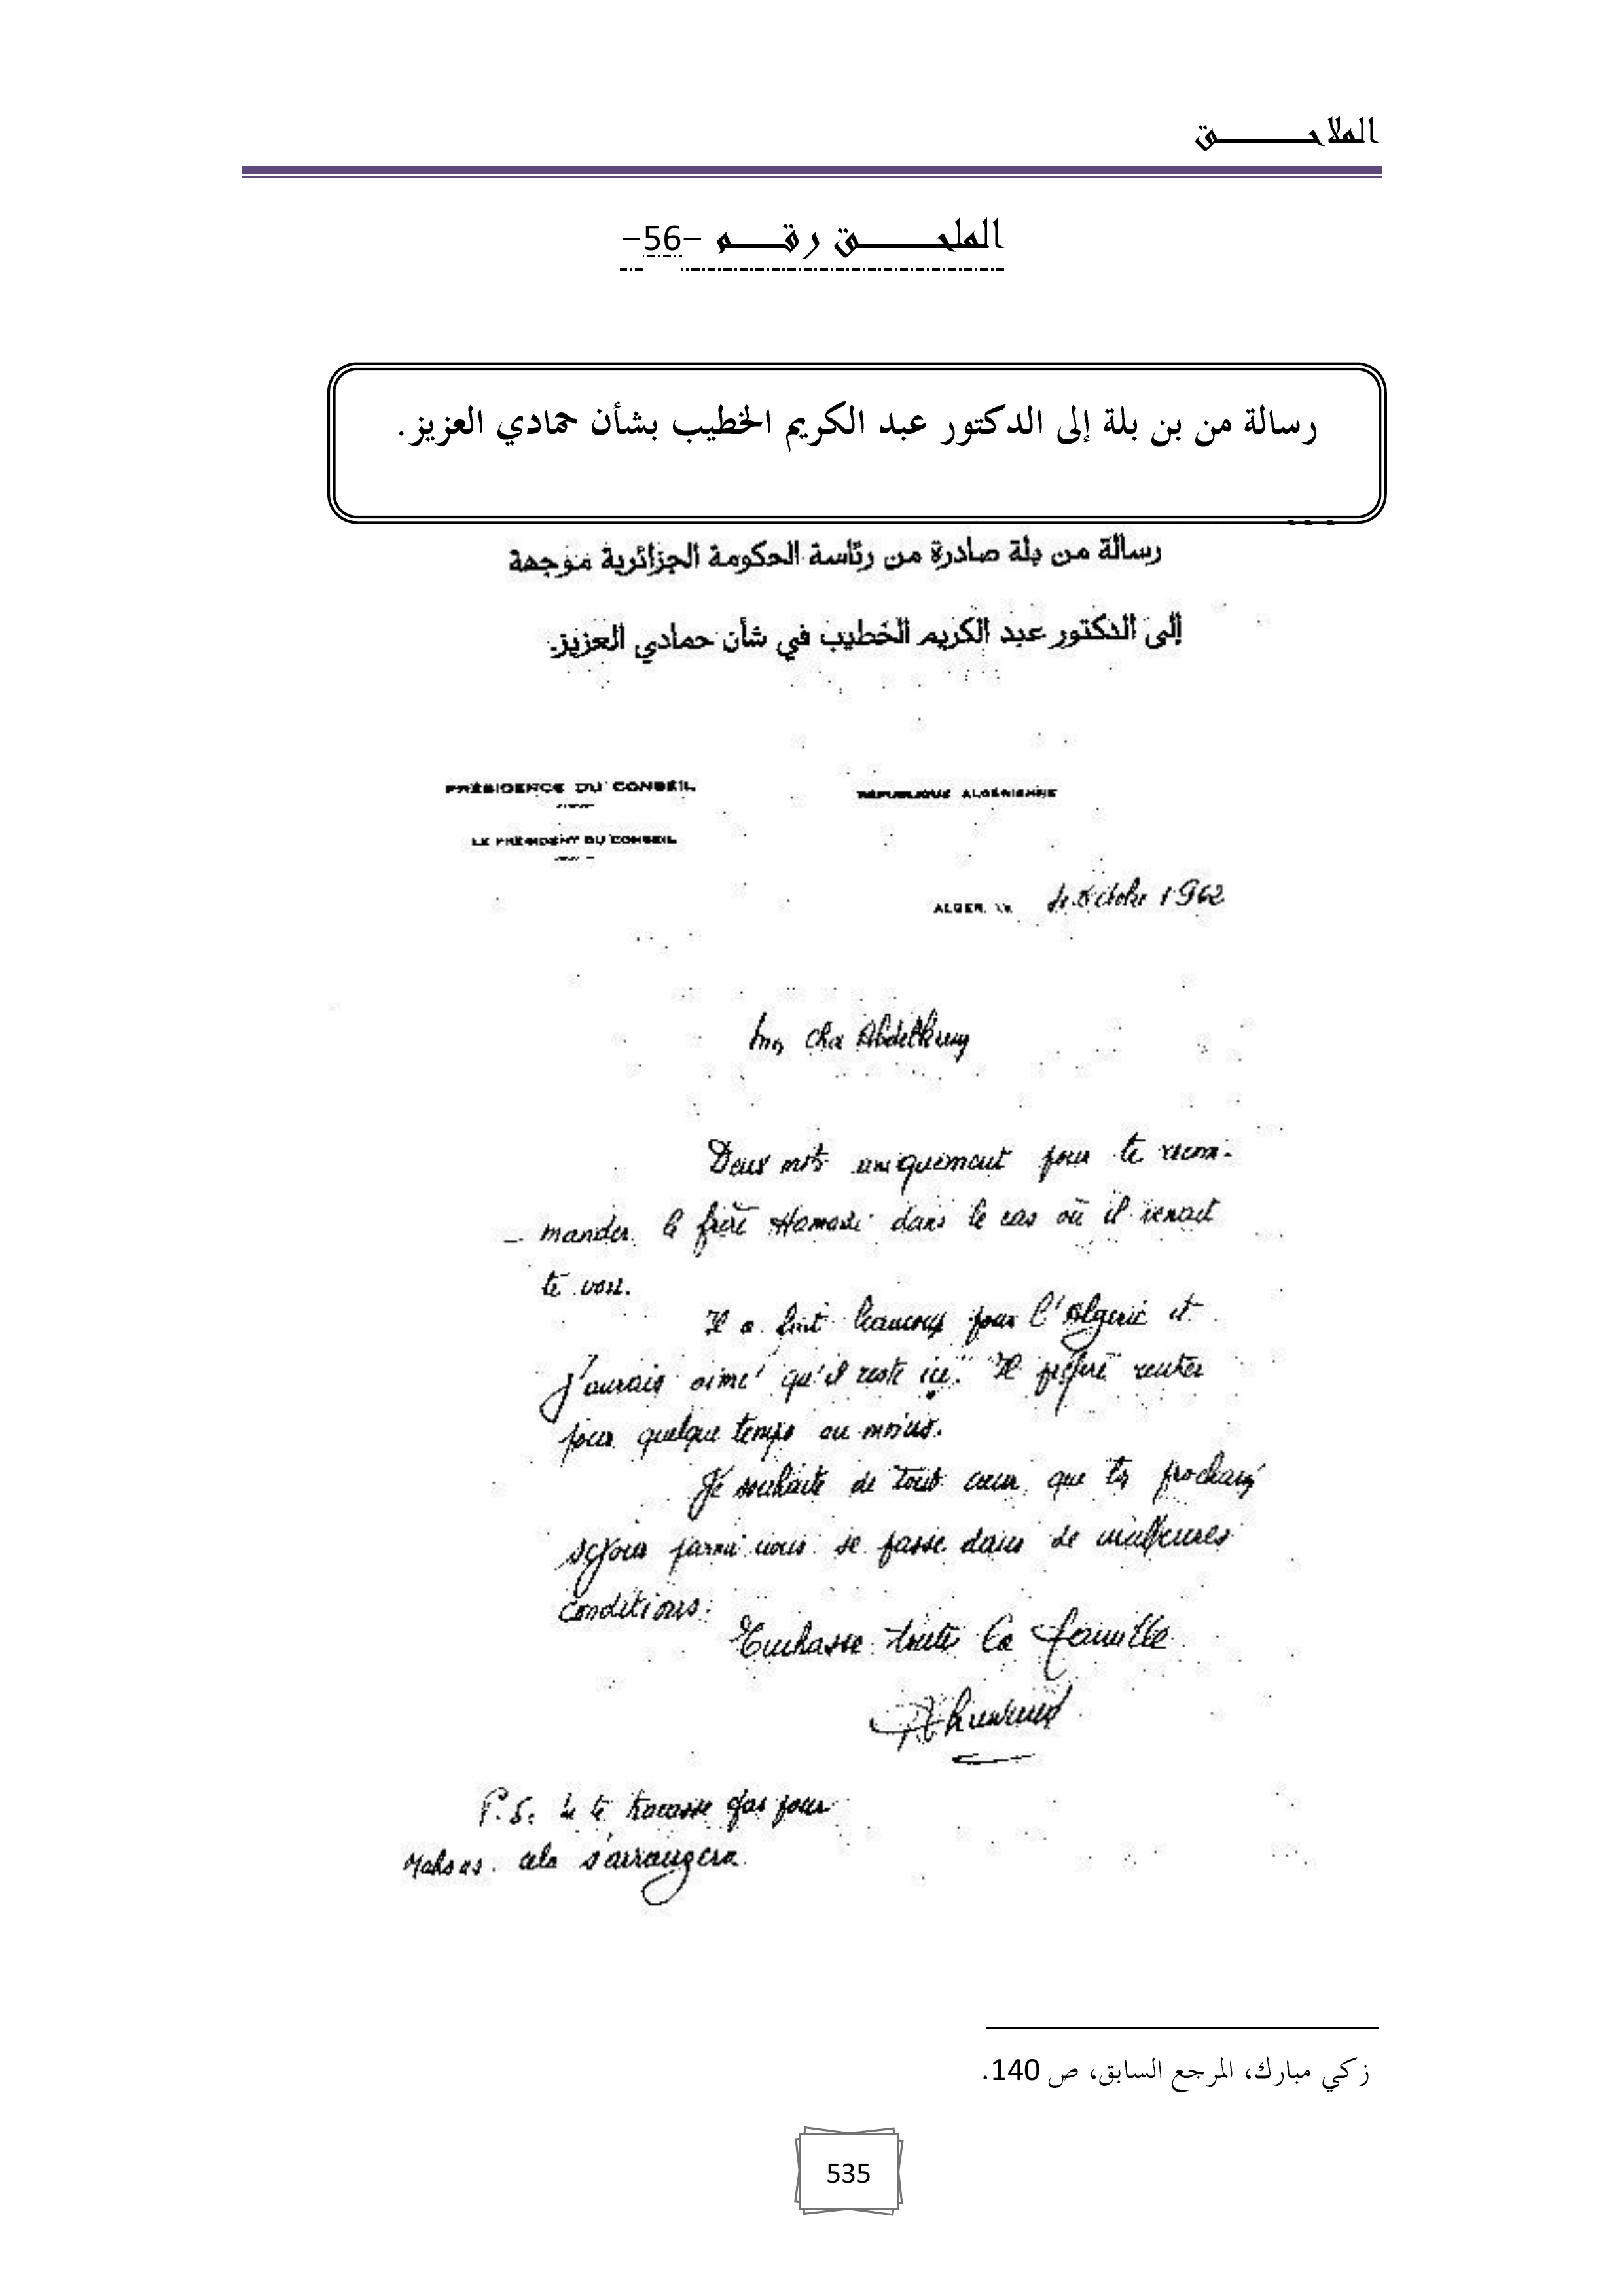 الملاحـــــــق
الملحـــــق رقـــــم –56–
رسالة من بن بلة إلى الدكتور عبد الكريم الخطيب بشأن حمادي العزيز.
رسالة من بلة صادرة من رئاسة الحكومة الجزائرية موجهة
إلى الدكتور عبد الكريم الخطيب في شأن حمادي العزيز.
PRÉSIDENCE DU CONSEIL
RÉPUBLIQUE ALGÉRIENNE
LE PRÉSIDENT DU CONSEIL
ALGER, LE Octobre 1962
Mon cher Abdelkrim
Deux mots uniquement pour te recom-
mander le frère Hamadi dans le cas où il venait
te voir.
Il a fait beaucoup pour l'Algérie et
j'aurais aimé qu'il reste ici. Il préfère rentrer
pour quelque temps au moins.
Je souhaite de tout cœur que ton prochain
séjour parmi nous se passe dans de meilleures
conditions.
Embrasse toute la famille
Ahmed
P.S. Ne te tracasse pas pour
Mahsas. cela s'arrangera.
زكي مبارك، المرجع السابق، ص 140.
535